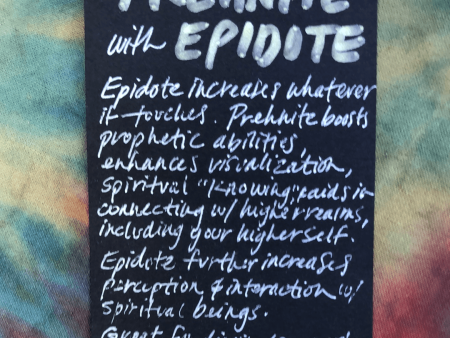 PREHNITE
with EPIDOTE
Epidote increases whatever
it touches. Prehnite boosts
prophetic abilities,
enhances visualization,
spiritual "knowing," aids in
connecting w/ higher realms,
including your higher self.
Epidote further increases
perception & interaction w/
spiritual beings.
Great for